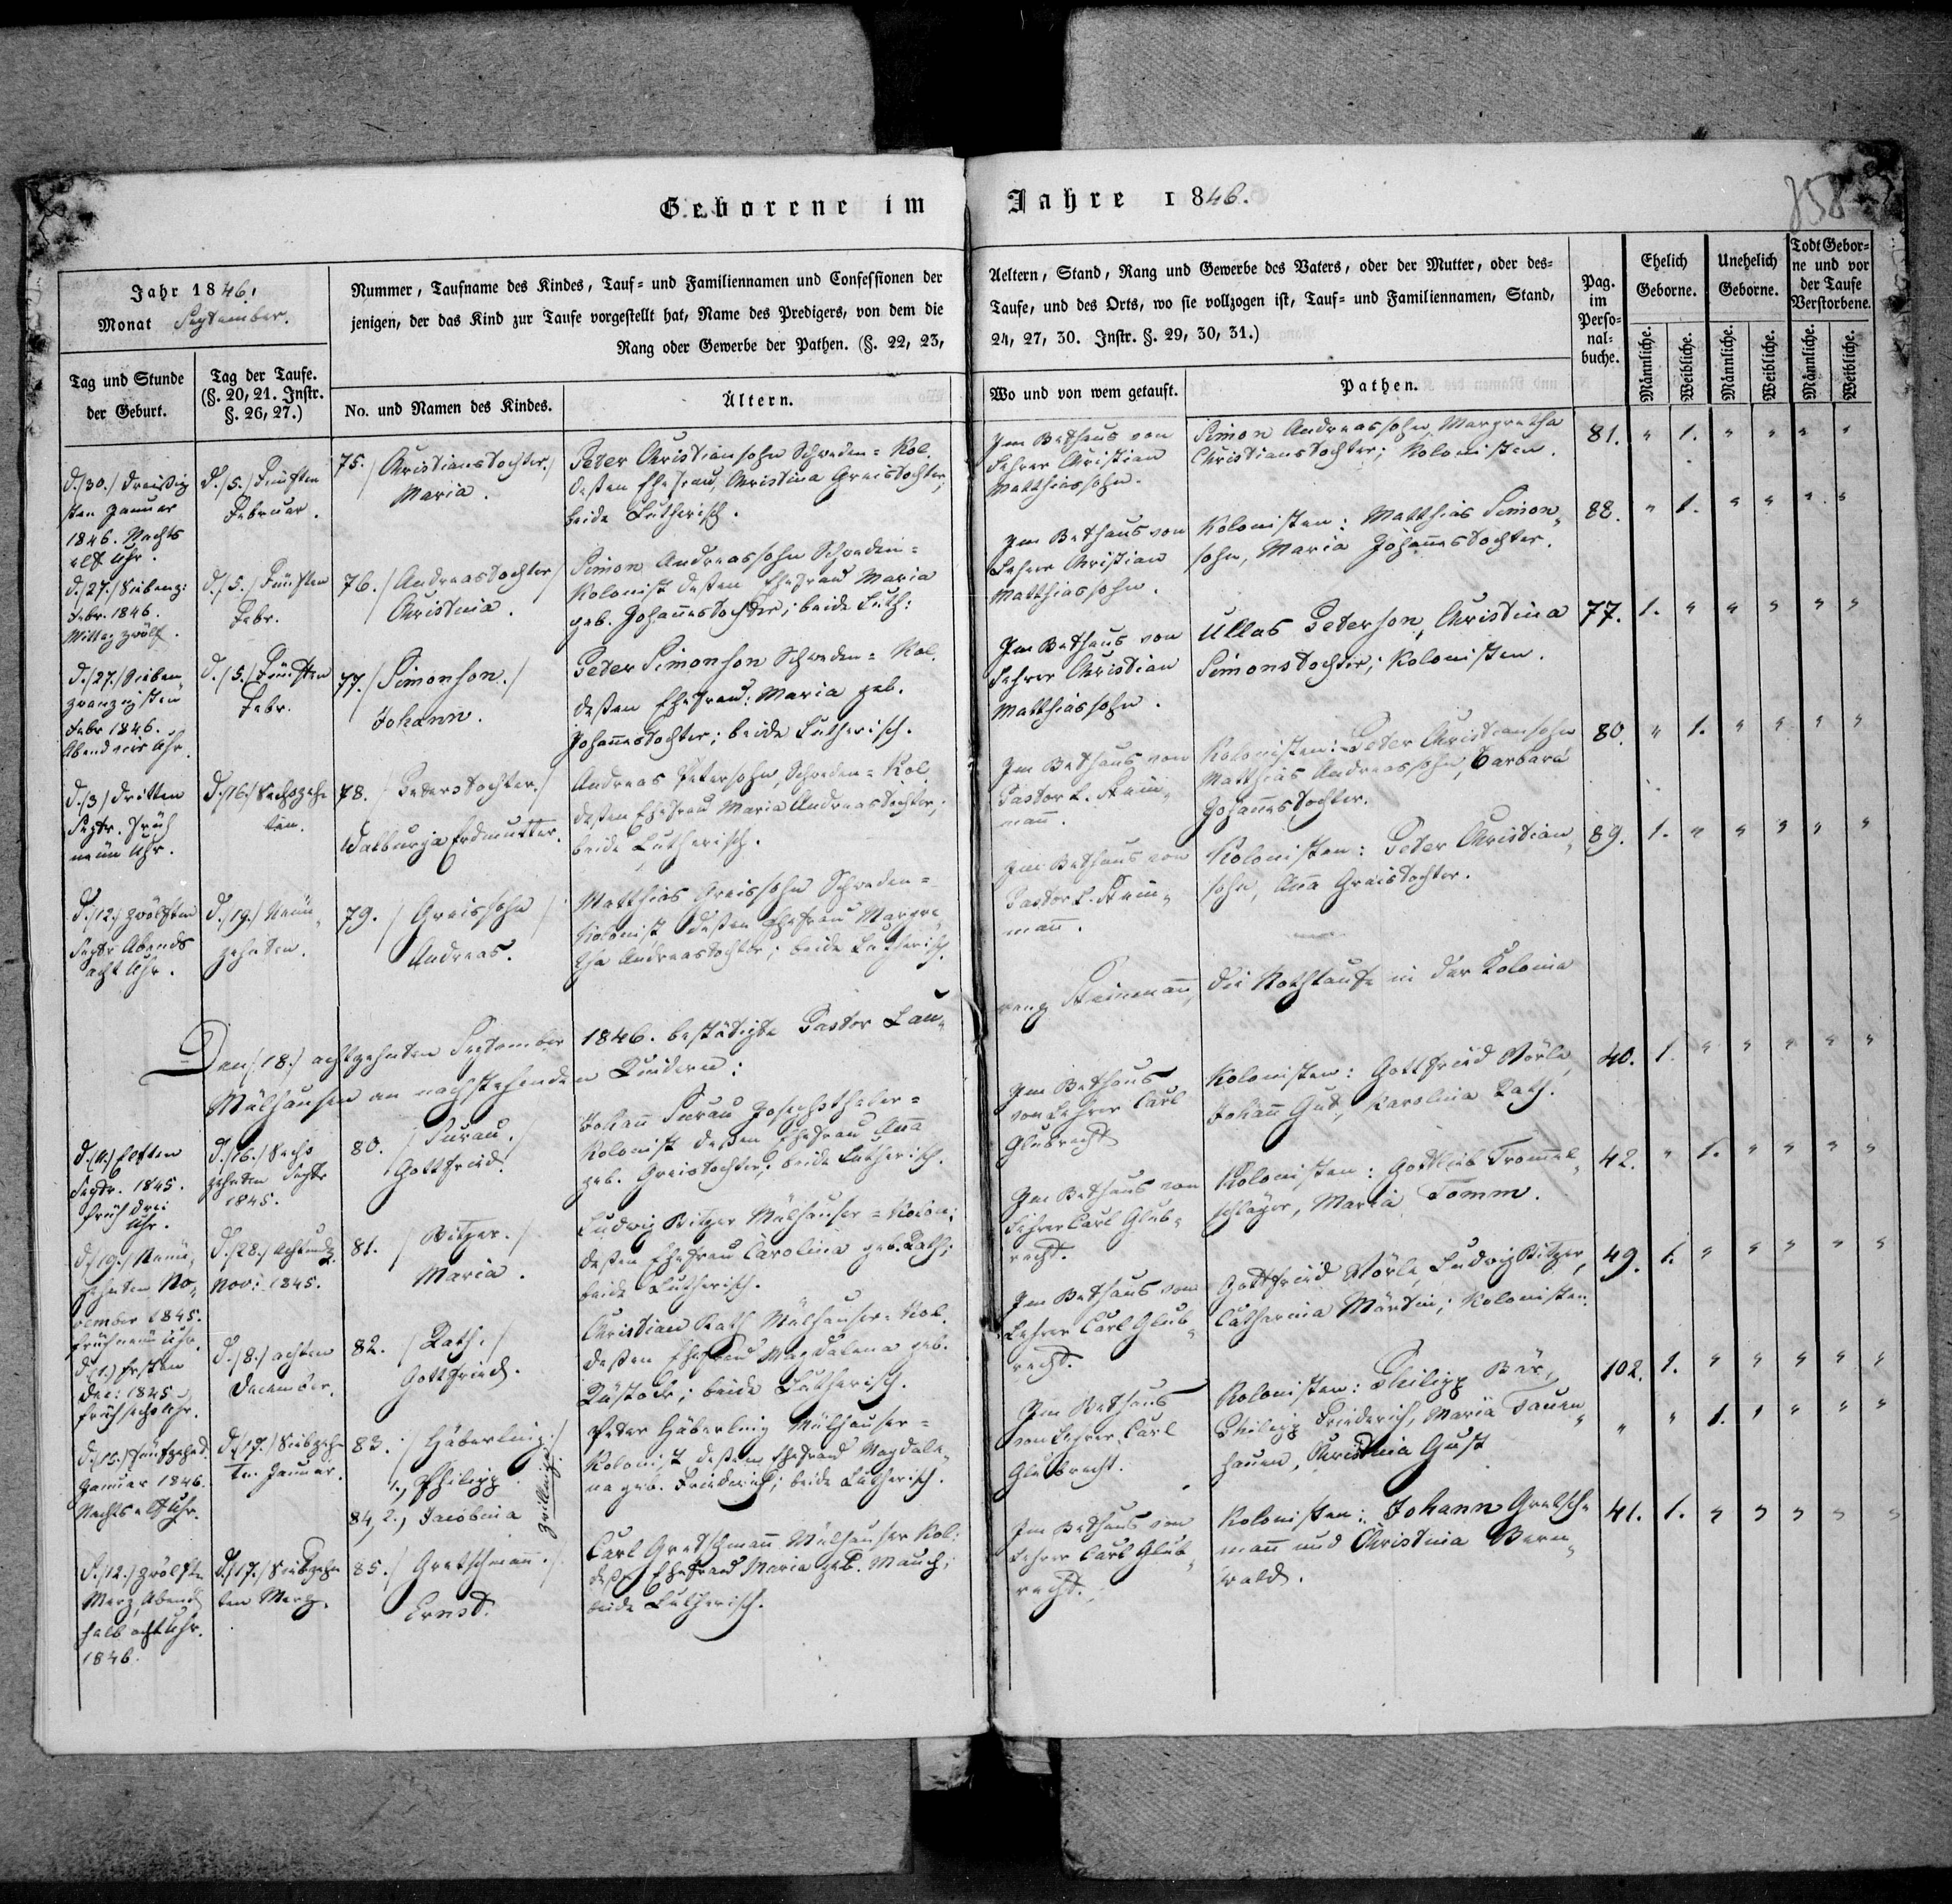 Geborene im Jahre 1846.
858
Jahr 1846.
Monat September.
Tag und Stunde
der Geburt.
Tag der Taufe.
(§. 20, 21. Instr.
§. 26, 27.)
Nummer, Taufname des Kindes, Tauf- und Familiennamen und Confessionen der
jenigen, der das Kind zur Taufe vorgestellt hat, Name des Predigers, von dem die
Rang oder Gewerbe der Pathen. (§. 22, 23,
No. und Namen des Kindes.
Ältern.
Aeltern, Stand, Rang und Gewerbe des Vaters, oder der Mutter, oder des-
Taufe, und des Orts, wo sie vollzogen ist, Tauf- und Familiennamen, Stand,
24, 27, 30. Instr. §. 29, 30, 31.)
Wo und von wem getauft.
Pathen.
Pag.
im
Perso-
nal-
buche.
Ehelich
Geborne.
Unehelich
Geborne.
Todt Gebor-
ne und vor
der Taufe
Verstorbene.
Männliche.
Weibliche.
Männliche.
Weibliche.
Männliche.
Weibliche.
d. /30./ dreißig
sten Januar
1846. Nachts
elf Uhr.
d. /5./ Fünften
Februar.
75. / Christianstochter /
Maria.
Peter Christiansohn Schweden- Kol.
deßen Ehefrau, Christina Greistochter,
beide Lutherisch.
Im Bethaus von
Lehrer Christian
Matthiassohn.
Simon Andreassohn, Margretha
Christianstochter; Kolonisten.
81. " 1. " " " "
d. /27./ Siebenz:
Febr. 1846.
Mittag zwölf.
d. /5./ Fünften
Febr.
76. / Andreastochter /
Christina.
Simon Andreassohn Schweden-
Kolonist deßen Ehefrau Maria
geb. Johannestochter; beide Luth:
Im Bethaus von
Lehrer Christian
Matthiassohn.
Kolonisten: Matthias Simon„
sohn, Maria Johannestochter.
88. " 1. " " " "
d. /27./ Sieben„
zwanzigsten
Febr 1846.
Abend vier Uhr.
d. /5./ Fünften
Febr.
77. / Simonson. /
Johann.
Peter Simonson Schweden- Kol.
deßen Ehefrau: Maria geb.
Johannestochter; beide Lutherisch.
Im Bethaus von
Lehrer Christian
Matthiassohn.
Ullas Peterson, Christina
Simonstochter; Kolonisten.
77. 1. " " " " "
d. /3/ dritten
Septr. Früh
neun Uhr.
d. /16./ Sechzehn
ten.
78. Peterstochter. /
Walburga Erdmutter.
Andreas Petersohn, Schweden- Kol.
deßen Ehefrau Maria Andreastochter;
beide Lutherisch.
Im Bethaus vom
Pastor L. Stein„
mann.
Kolonisten: Peter Christiansohn
Matthias Andreassohn, Barbara
Johannestochter.
80. " 1. " " " "
d. /12./ zwölften
Septr. Abends
acht Uhr.
d. /19./ Neun„
zehnten.
79. / Greissohn /
Andreas.
Matthias Greissohn Schweden-
Kolonist deßen Ehefrau Margre„
tha Andreastochter; beide Lutherisch.
Im Bethaus von
Pastor L. Stein„
mann.
Kolonisten: Peter Christian„
sohn, Anna Greistochter.
89. 1. " " " " "
Den /18./ achtzehnten September 1846. bestätigte Pastor Lau„
renz Steinmann, die Nothtaufe in der Kolonie
Mülhausen an nachstehenden Kindern:
d. (11.) Eilften
Septr. 1845.
früh drei
Uhr.
d. /16./ Sechs
zehnten Septr
1845.
80. / Surau. /
Gottfried.
Johann Surau Josephsthaler-
Kolonist deßen Ehefrau Anna
geb. Greistochter; beide Lutherisch.
Im Bethaus
von Lehrer Carl
Glubrecht
Kolonisten: Gottfried Wörle,
Johann Gust, Karolina Rath.
40. 1. " " " " "
d. /19./ Neun„
zehnten No„
vember 1845.
früh neun Uhr.
d. /28./ Achtundz.
Nov: 1845.
81. / Bitzer. /
Maria.
Ludwig Bitzer Mülhauser- Kolon;
deßen Ehefrau Carolina geb. Rath;
beide Lutherisch.
Im Bethaus von
Lehrer Carl Glub„
recht.
Kolonisten: Gottlieb Trommel„
schläger, Maria Tomm.
42. " 1. " " " "
d. (1.) Ersten
Dec: 1845.
früh sechs Uhr.
d. /8./ achten
December.
82. / Rath. /
Gottfried.
Christian Rath Mülhauser- Kol.
deßen Ehefrau Magdalena geb.
beide Lutherisch.
Im Bethaus vom
Lehrer Carl Glub„
recht.
Gottfried Wörle, Ludwig Bitzer,
Catharina Martin; Kolonisten.
49. 1. " " " " "
d. /15./ fünfzehnt.
Januar 1846.
Nachts elf Uhr.
d. /17./ Siebzehn
ten Januar.
83. / Häberling. /
1., Philipp.
84, 2., Jacobina
Zwillinge.
Peter Häberling Mülhauser-
Kolonist deßen Ehefrau Magdale„
na geb. Friederich; beide Lutherisch.
Im Bethaus
von Lehrer Carl
Glubrecht.
Kolonisten: Philipp Bär,
Philipp Friederich, Maria Tauen„
hauen, Christina Gust
102. 1. " " " " "
" " 1. " " " "
d. /12./ zwölften
Merz, Abend
halb acht Uhr.
1846.
d. /17./ Siebzehn
ten Merz.
85. / Gretschmann. /
Ernst.
Carl Gretschmann Mülhauser Kol:
deßen Ehefrau Maria geb. Mauch;
beide Lutherisch.
Im Bethaus von
Lehrer Carl Glub„
recht.
Kolonisten: Johann Gretsch„
mann und Christina Bern„
wald.
41. 1. " " " " "